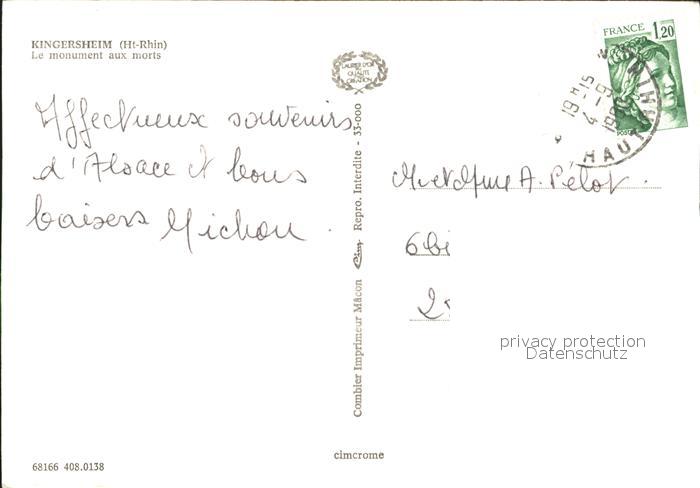 KINGERSHEIM (Ht-Rhin)
Le monument aux morts
LAURIER D'OR
DE
QUALITÉ
CRÉATION
FRANCE 1,20
POSTES
19 H 15
4 - 9
1980
HAUT-RHIN
Affectueux souvenirs
d'Alsace et bons
baisers Michou.
Combier Imprimeur Mâcon Cim Repro. Interdite - 33-000
Mr et Mme A. Pélot.
6bi
2
privacy protection
Datenschutz
cimcrome
68166 408.0138